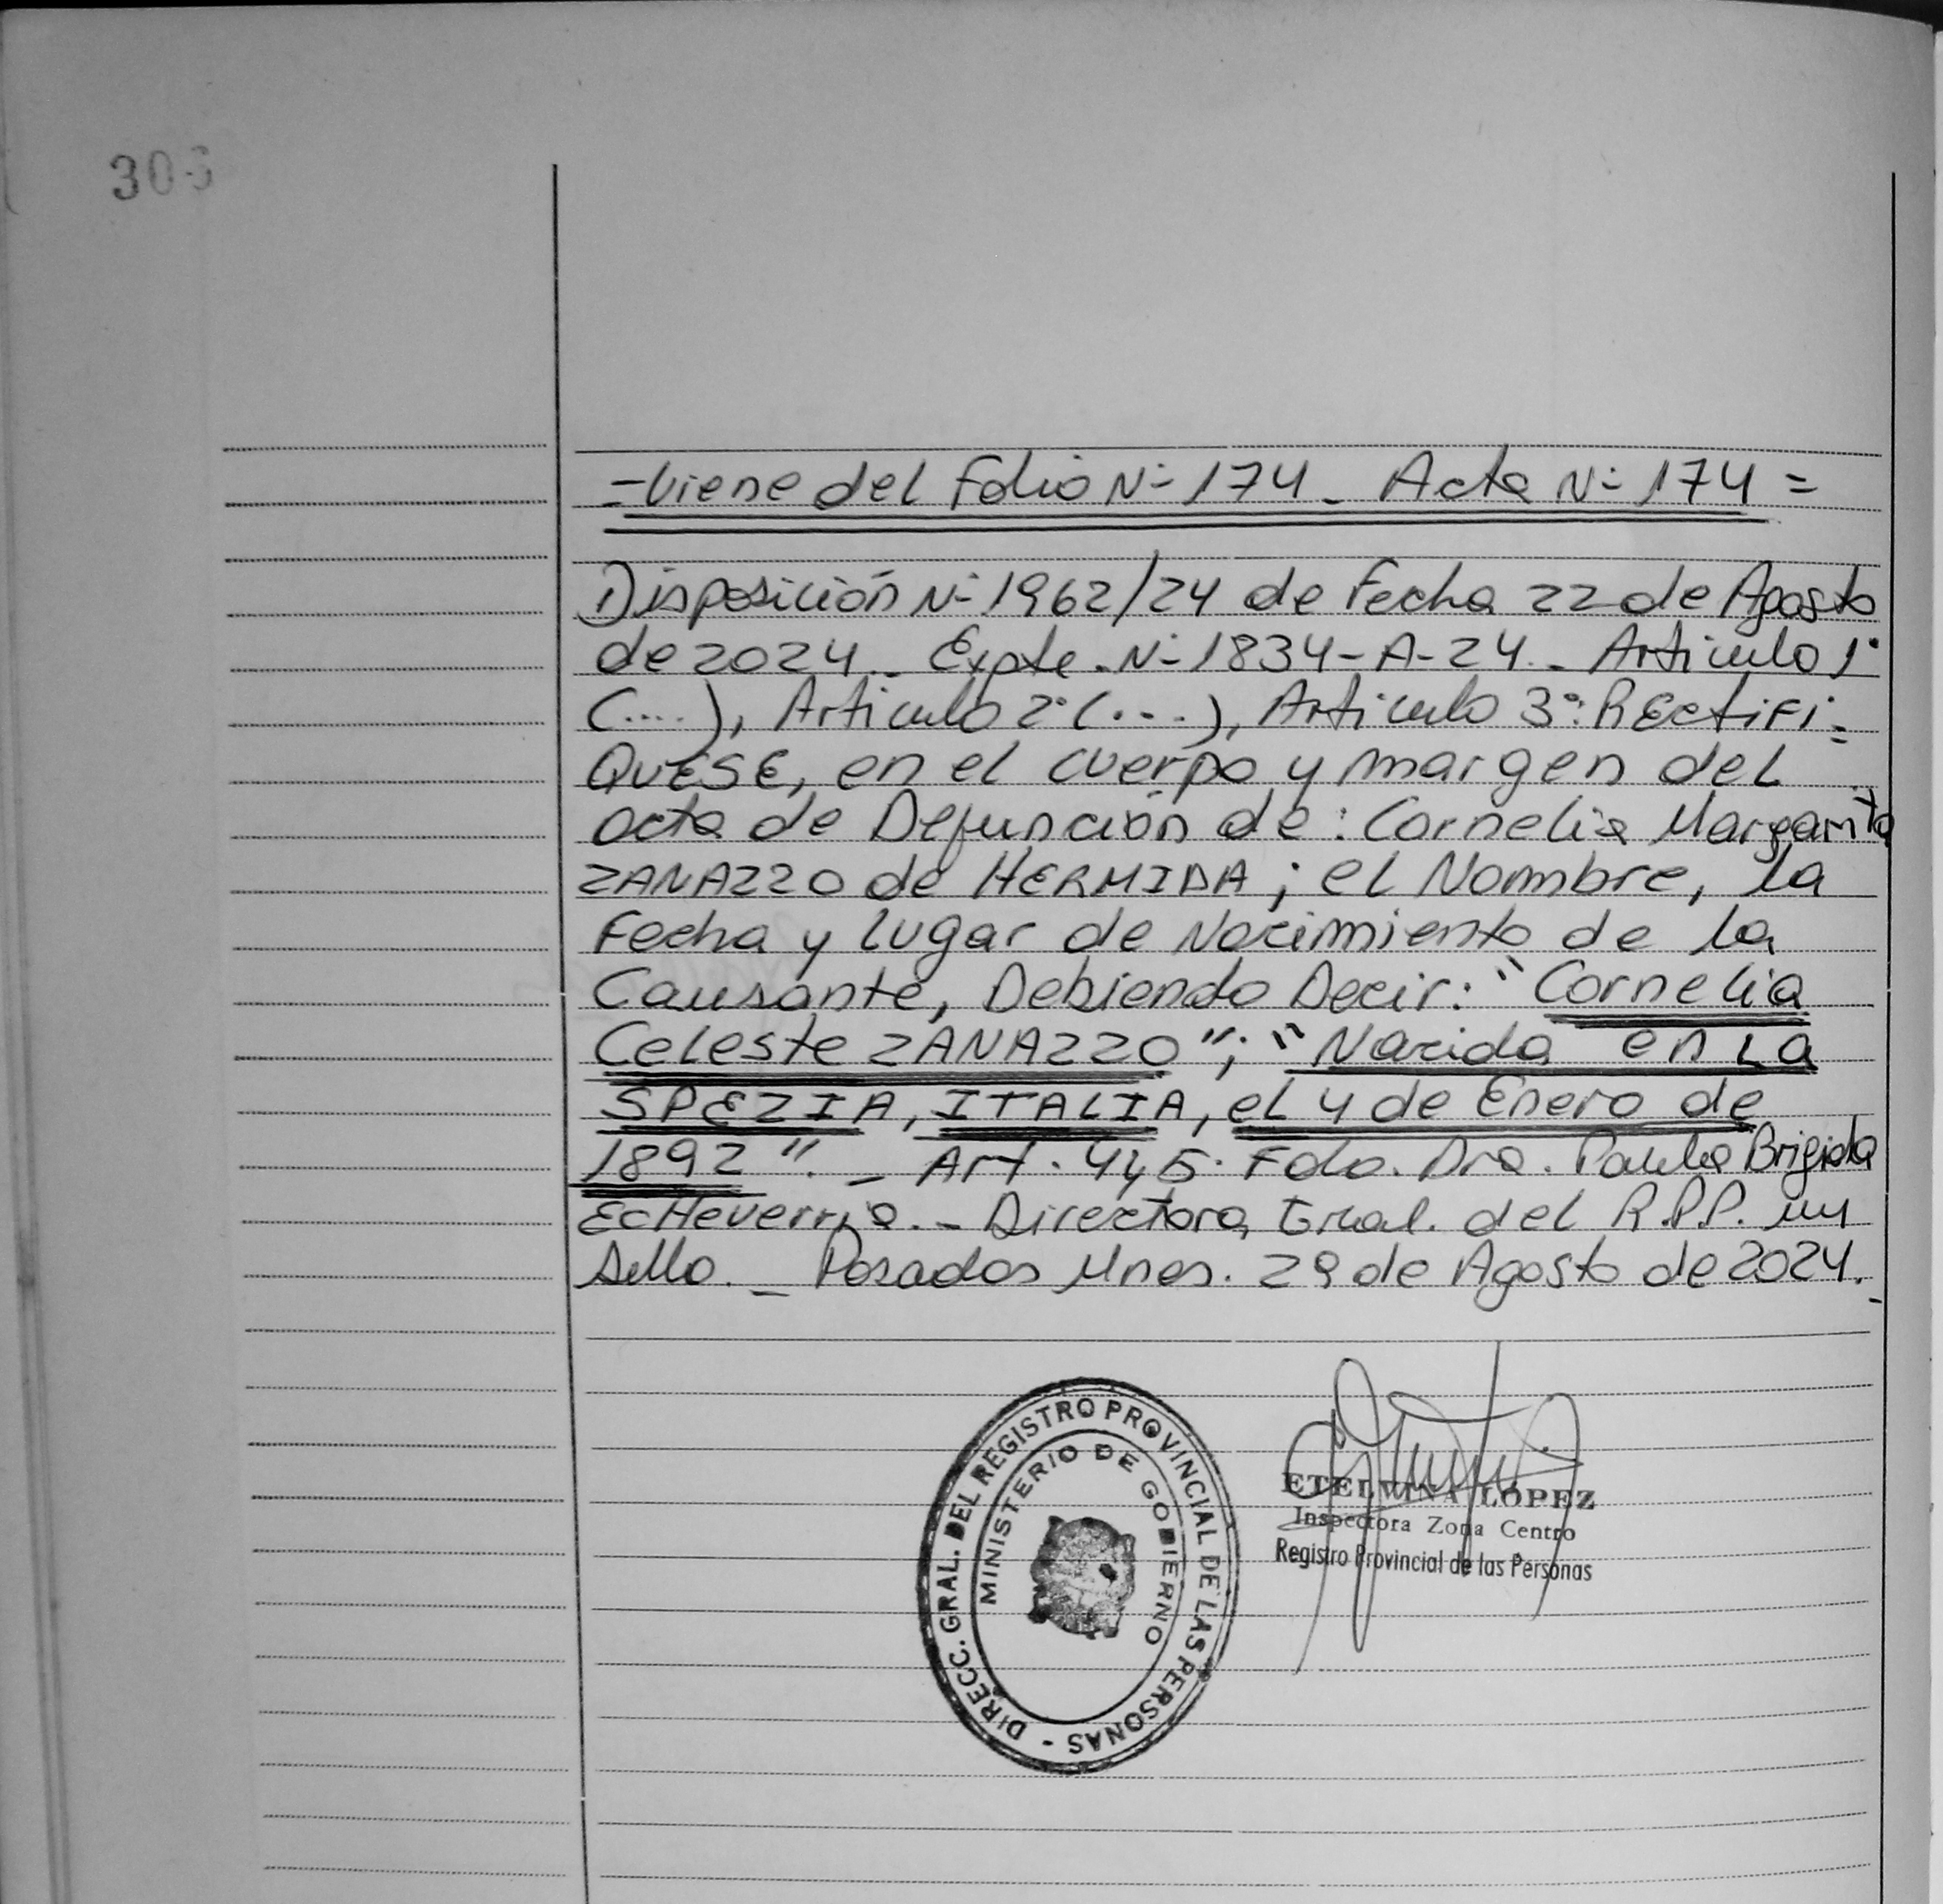 306
=Viene del Folio Nº 174 - Acta Nº 174=
Disposición Nº 1962/24 de Fecha 22 de Agosto
de 2024.- Expte. Nº 1834-A-24.- Articulo 1º
(....), Articulo 2º (...), Articulo 3º: RECtiFi-
QUESE, en el cuerpo y margen del
acta de Defunción de: Cornelia Margarita
ZANAZZO de HERMIDA; el Nombre, la
Fecha y lugar de Nacimiento de la
Causante, Debiendo Decir: "Cornelia
Celeste ZANAZZO"; "Nacida en LA
SPEZIA, ITALIA, el 4 de Enero de
1892".- Art. 4y5. Fdo. Dra. Paula Brigida
EcHeverria.- Directora Gral. del R.P.P. un
Sello.- Posadas Mnes. 29 de Agosto de 2024.-
DIRECC. GRAL. DEL REGISTRO PROVINCIAL DE LAS PERSONAS -
MINISTERIO DE GOBIERNO
ETELVINA LOPEZ
Inspectora Zona Centro
Registro Provincial de las Personas